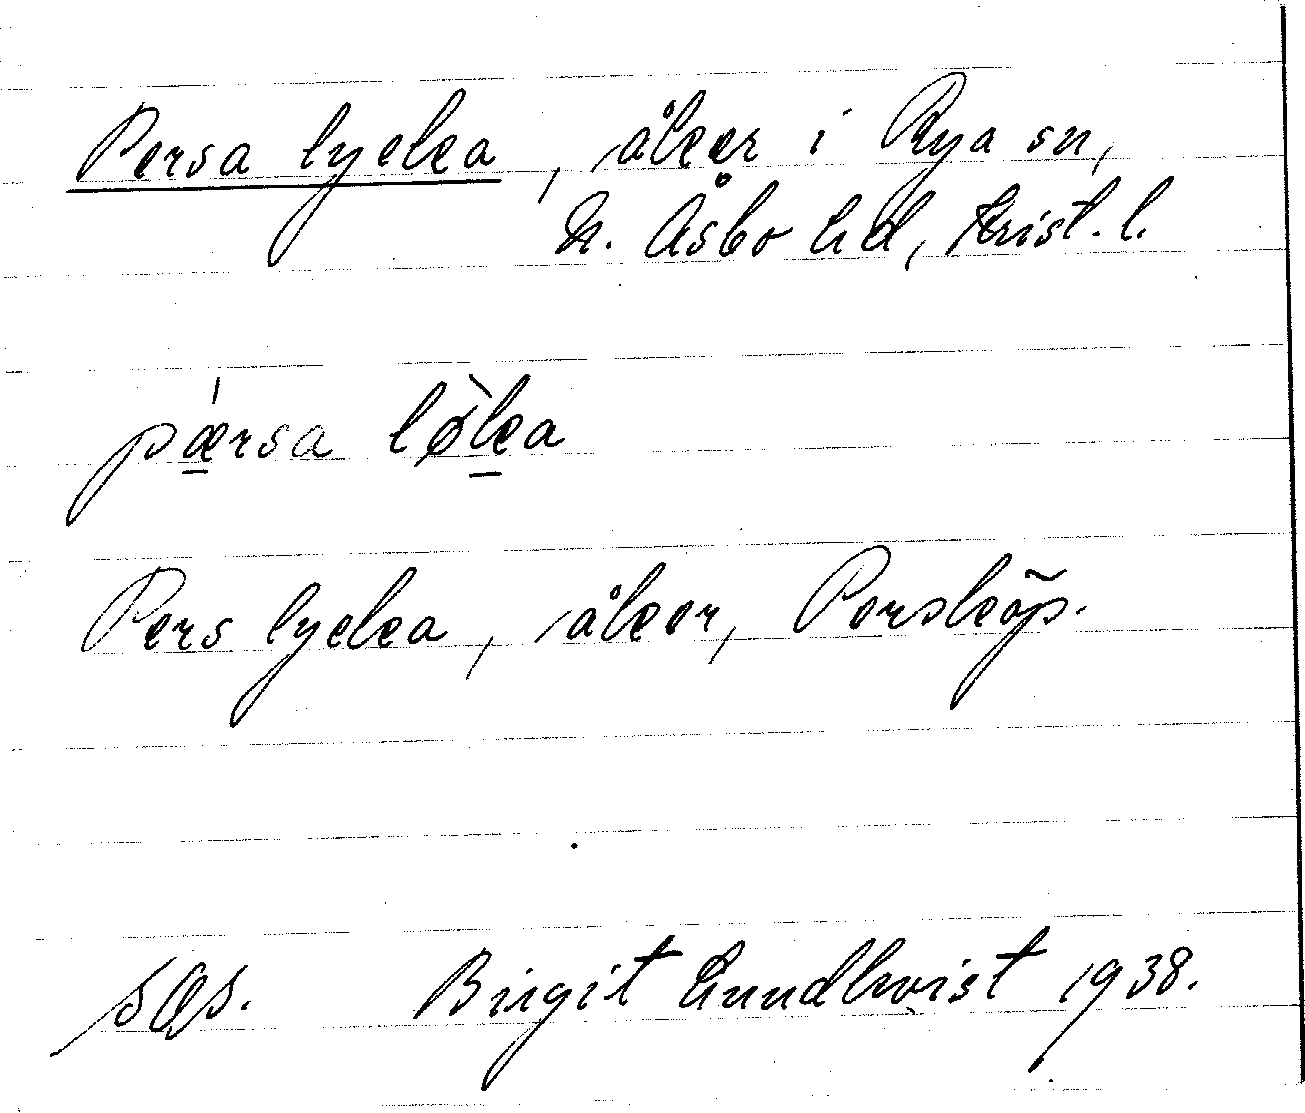 Persa lycka, åker i Rya sn,
N. Åsbo hd, Krist. l.
pǽrsa lø̀ka
Pers lycka, åker, Perskõp.
SOS. Birgit Lundkvist 1938.